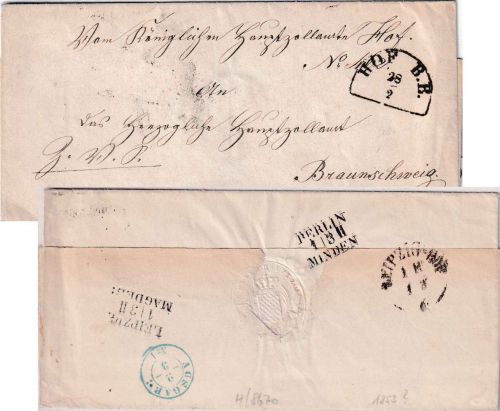 Vom Königlichen Hauptzollamte Hof.
No.
HOF B.B.
28
2
An
das Herzogliche Hauptzollamt
Z. V. S.
Braunschweig.
BERLIN
1 | 3 II
MINDEN
LEIPZIG
1
LEIPZIG
1 | 3 II
MAGDEB:
AUSGAB:
H/8670
1853?